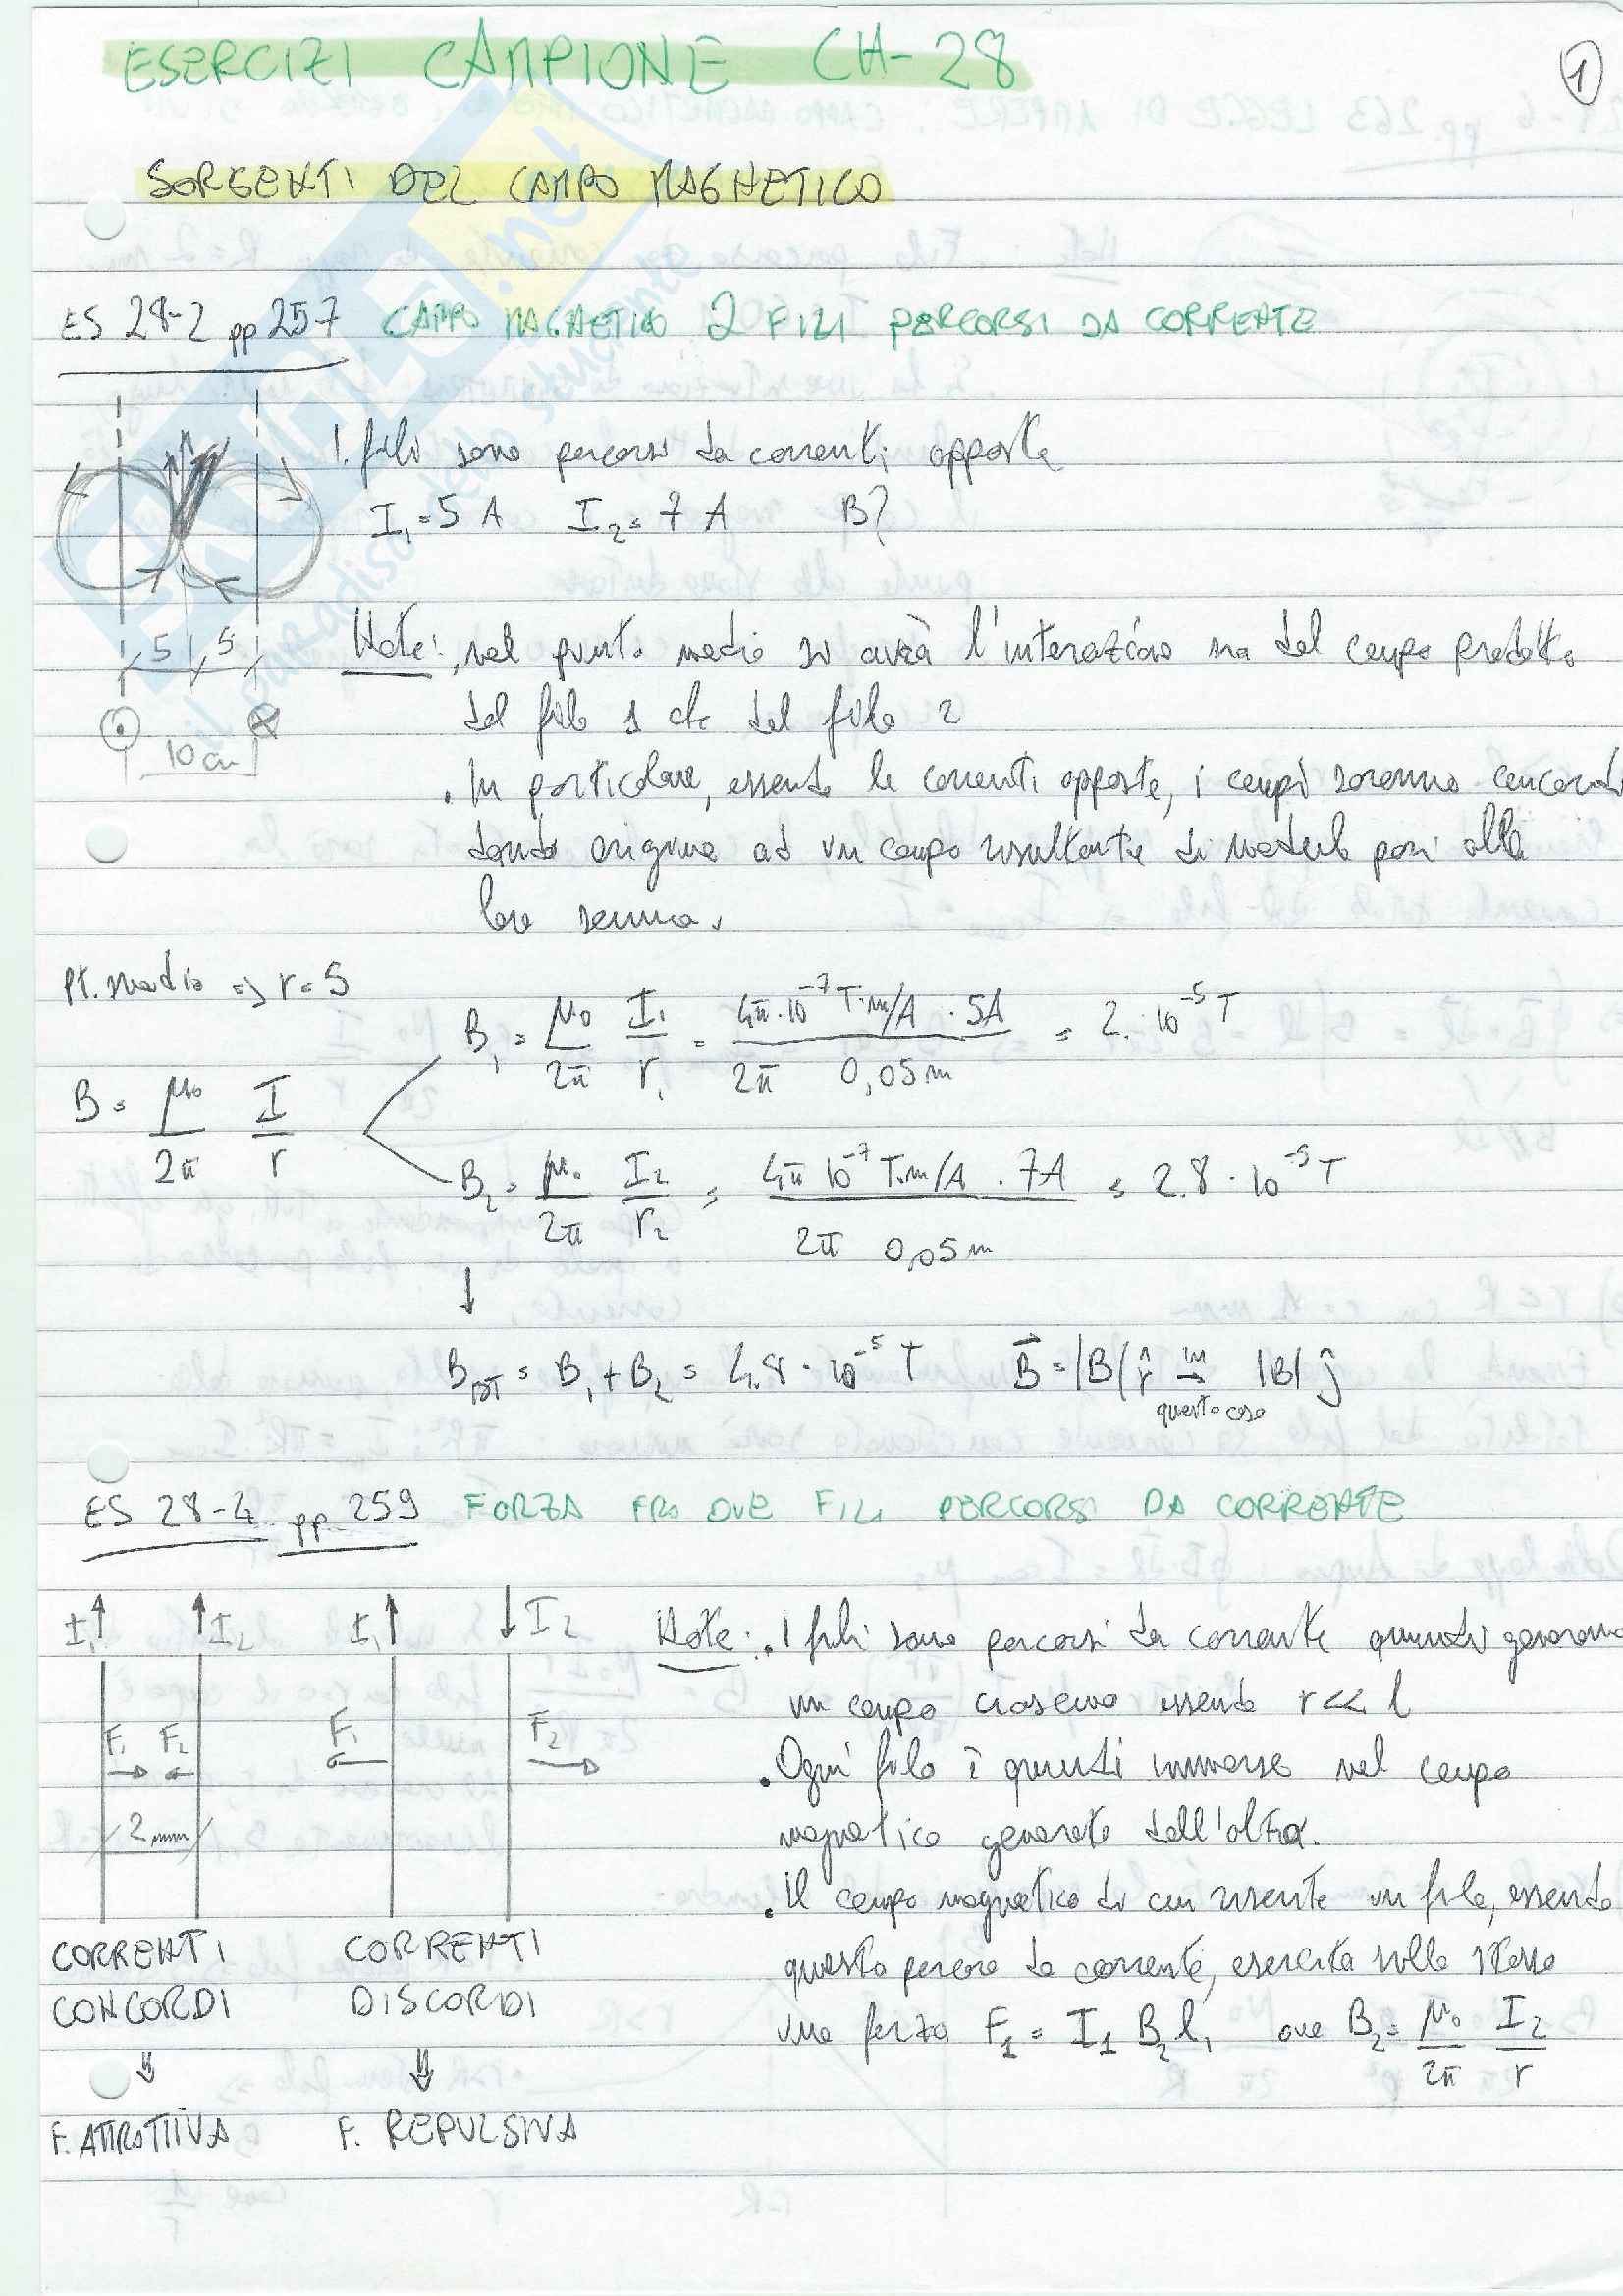 ESERCIZI CAMPIONE CH-28
1
SORGENTI DEL CAMPO MAGNETICO
ES 28-2 pp 257 CAMPO MAGNETICO 2 FILI PERCORSI DA CORRENTE
I fili sono percorsi da correnti opposte
I₁ = 5 A I₂ = 7 A B?
5 5
10 cm
Note: . nel punto medio si avrà l'interazione sia del campo prodotto
dal filo 1 che dal filo 2
. In particolare, essendo le correnti opposte, i campi saranno concordi
dando origine ad un campo risultante di modulo pari alla
loro somma.
Pt. medio => r = 5
B₁ = μ₀/2π I₁/r₁ = 4π·10⁻⁷ T·m/A · 5A / 2π 0,05m = 2·10⁻⁵ T
B = μ₀/2π I/r
B₂ = μ₀/2π I₂/r₂ = 4π 10⁻⁷ T·m/A · 7A / 2π 0,05m = 2.8·10⁻⁵ T
↓
B_TOT = B₁ + B₂ = 4.8·10⁻⁵ T B⃗ = |B| r̂ in questo caso → |B| ĵ
ES 28-4 pp 259 FORZA FRA DUE FILI PERCORSI DA CORRENTE
I₁ I₂ I₁ I₂
F₁ F₂ F₁ F₂
2 mm
CORRENTI CONCORDI
⇓
F. ATTRATTIVA
CORRENTI DISCORDI
⇓
F. REPULSIVA
Note: . I fili sono percorsi da corrente quindi generano
un campo ciascuno essendo r << l
. Ogni filo è quindi immerso nel campo
magnetico generato dall'altro.
. Il campo magnetico di cui risente un filo, essendo
questo percorso da corrente, esercita sullo stesso
una forza F₁ = I₁ B₂ l₁ ove B₂ = μ₀/2π I₂/r
il paradiso dello studente
.net